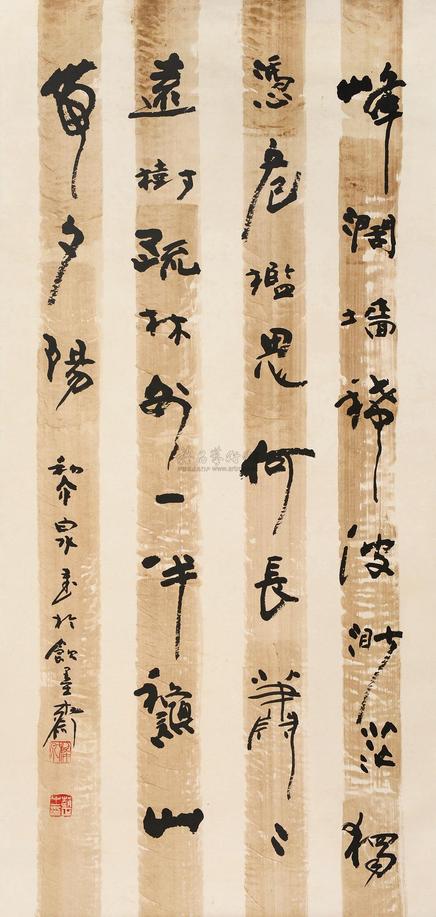 峰濶墙稀波渺茫獨
憑危檻思何長蕭〻
遠樹疏林外一半龝山
帶夕陽 黎泉書於飲墨齋